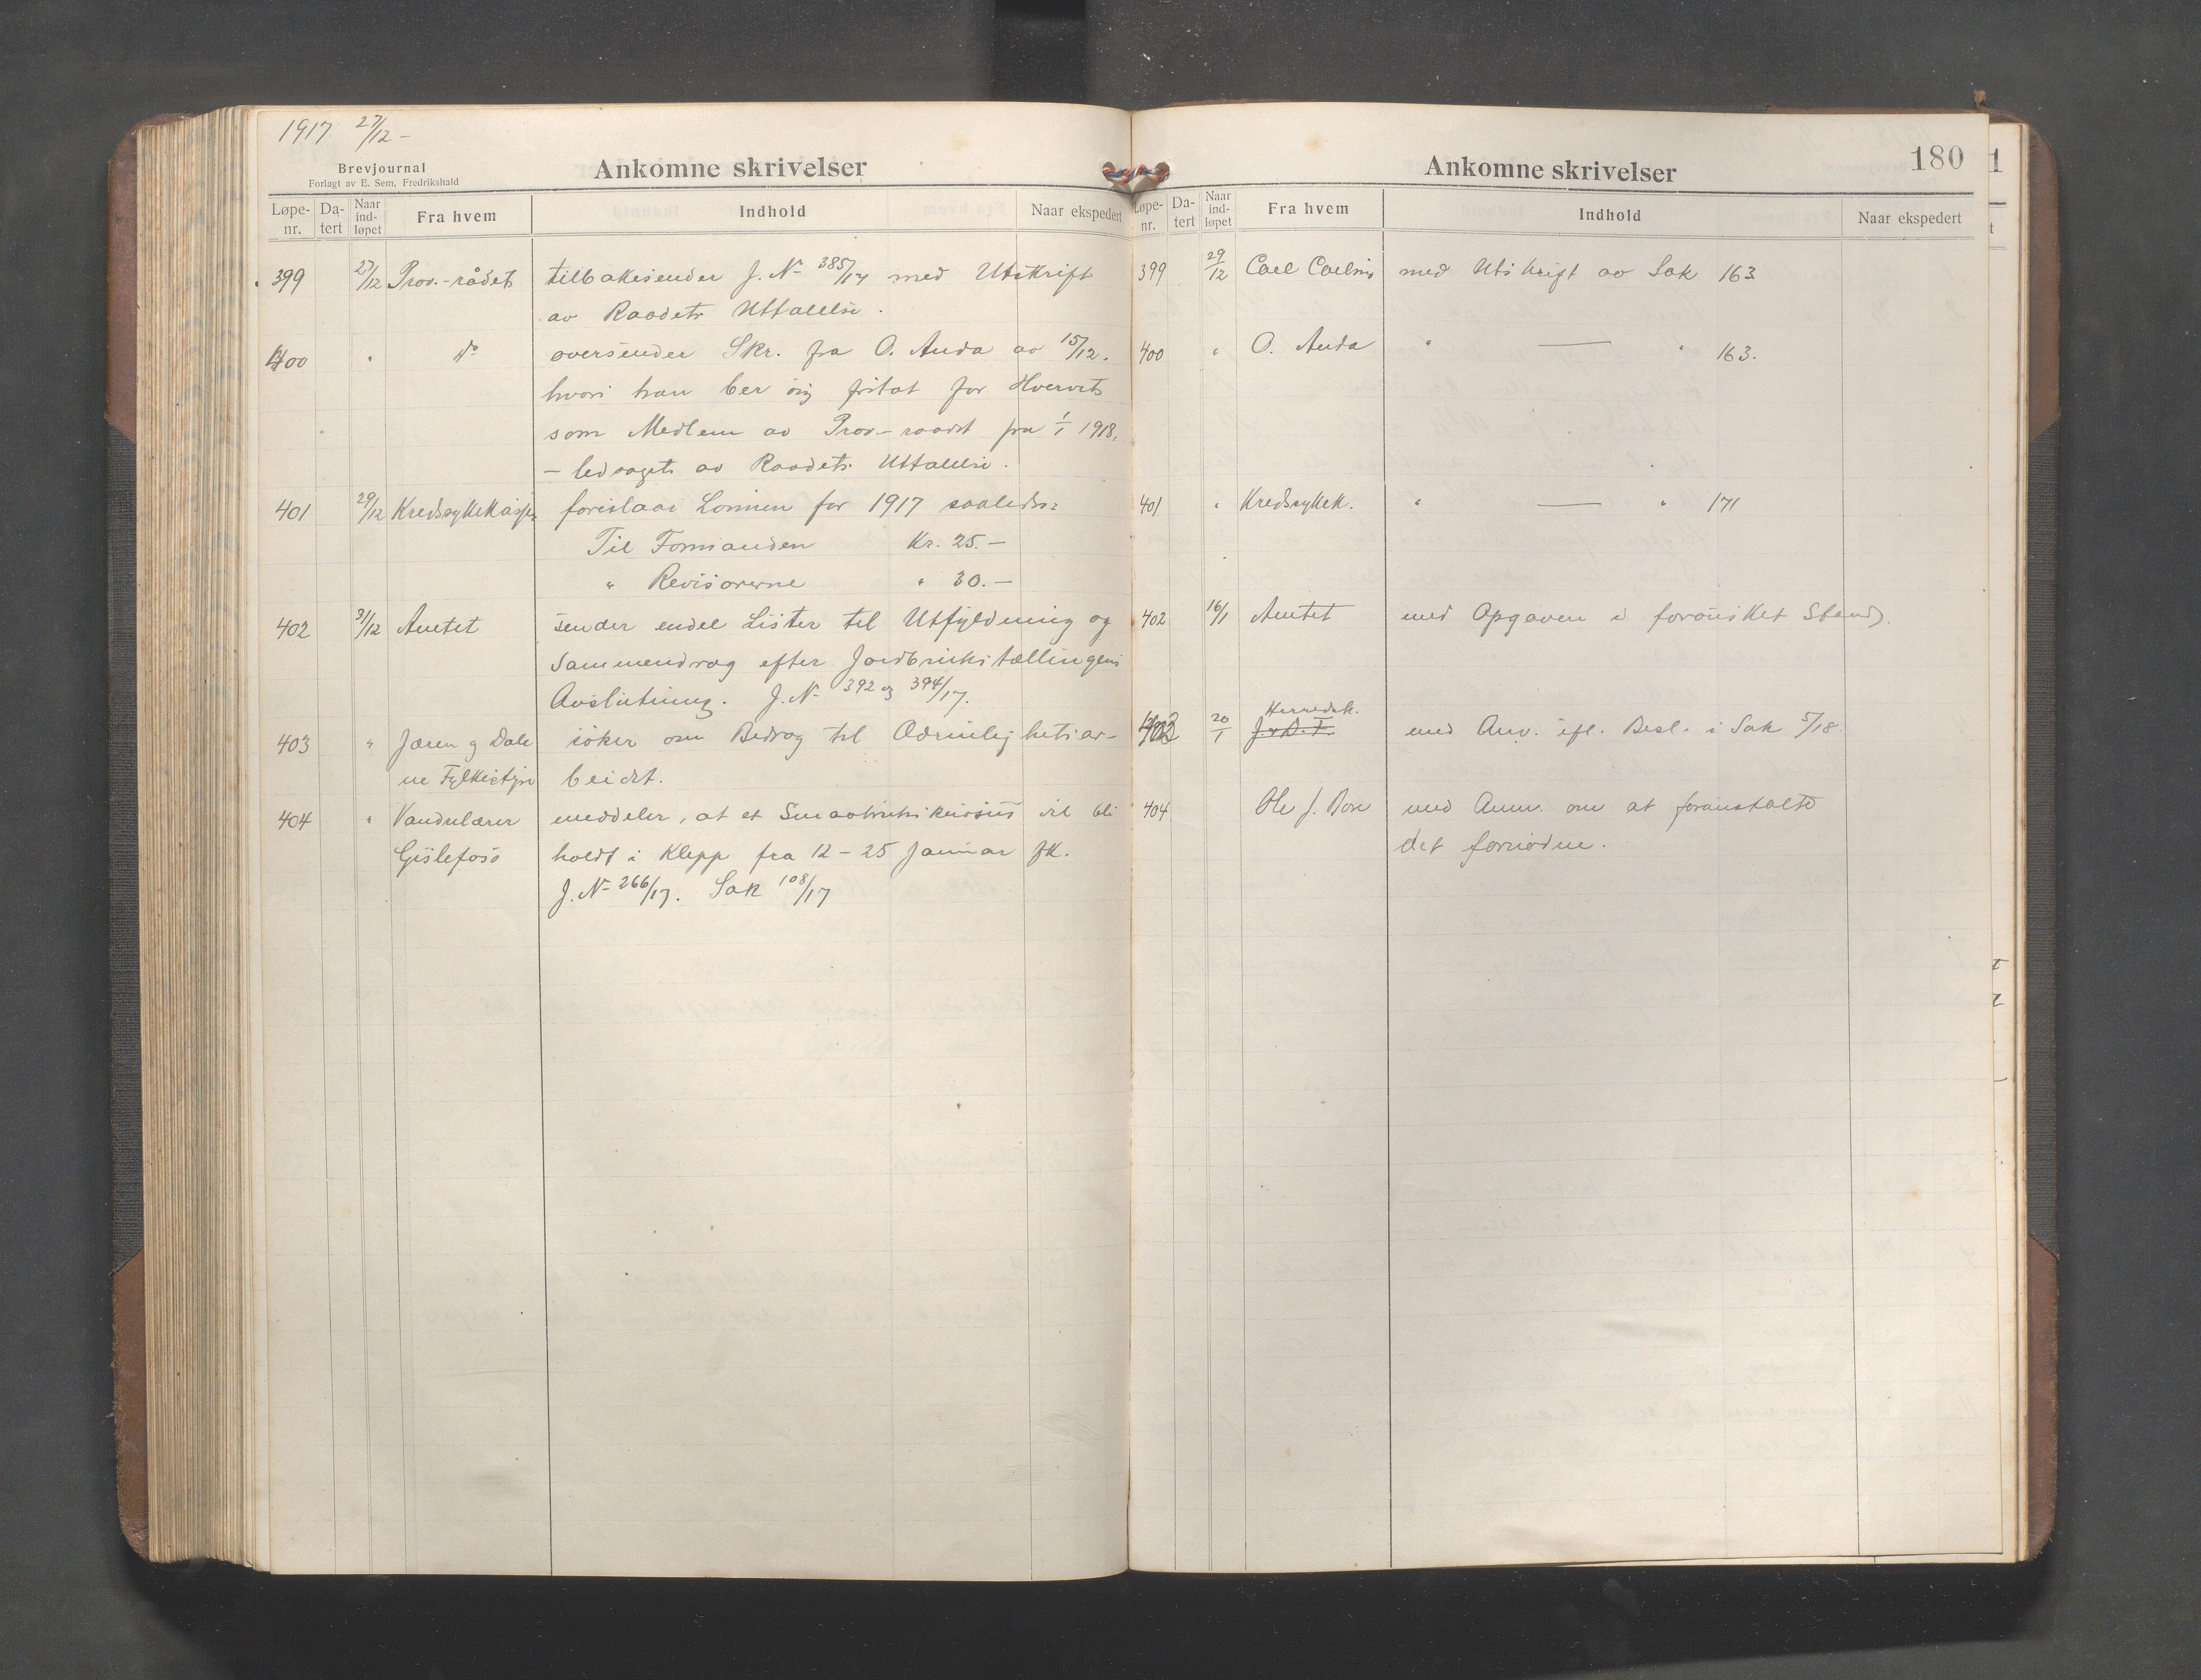 1917 27/12 -
Brevjournal
Forlagt av E. Sem, Fredrikshald
Ankomne skrivelser
Løpe-nr. Da-tert Naar ind-løpet Fra hvem Indhold Naar ekspedert
399 27/12 Prov.-rådet tilbakesender J. No 385/17 med Utskrift
av Raadets Uttalelse.
400 " do oversender Skr. fra O. Anda av 15/12.
hvori han ber sig fritat for Hvervet
som Medlem av Prov-raadet fra 1/1 1918,
- ledsaget av Raadets Uttalelse.
401 29/12 Kredssykekassen foreslaar Lønnen for 1917 saaledes:
Til Formanden Kr. 25.-
" Revisorerne " 30.-
402 31/12 Amtet sender endel Lister til Utfyldning og
Sammendrag efter Jordbrukstællingens
Avslutning. J. No 392 og 394/17.
403 " Jæren og Dale søker om Bidrag til Ædruelighetsar-
ne Fylkestyre beidet.
404 " Vandrelærer meddeler, at et Smaabrukskursus vil bli
Gislefoss holdt i Klepp fra 12-25 Januar fk.
J. No 266/17. Sak 108/17
Ankomne skrivelser
180
Løpe-nr. Da-tert Naar ind-løpet Fra hvem Indhold Naar ekspedert
399 29/12 Carl Carlsen med Utskrift av Sak 163
400 " O. Anda " — " 163.
401 " Kredssykek. " — " 171
402 16/1 Amtet med Opgaven i forønsket Stand.
Herredsk.
403 20/1 J. & D. F. med Anv. ifl. Besl. i Sak 5/18.
404 Ole J. Bore med Anm. om at foranstalte
det fornødne.
1